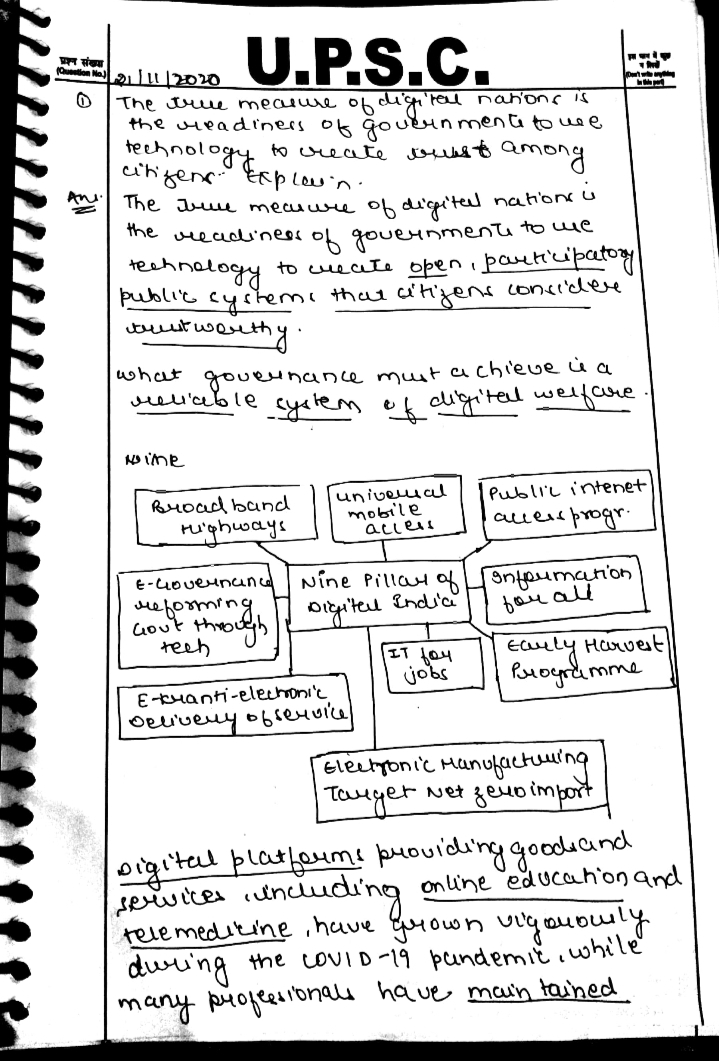 प्रश्न संख्या
(Question No.)
21/11/2020
U.P.S.C.
इस भाग में कुछ
न लिखें
(Don't write anything
in this part)
① The true measure of digital nations is
the readiness of governments to use
technology to create trust among
citizens. Explain.
Ans. The true measure of digital nations is
the readiness of governments to use
technology to create open, participatory
public systems that citizens consider
trustworthy.
What governance must achieve is a
reliable system of digital welfare.
Broadband
Highways
Universal
mobile
access
Public intenet
access progr.
E-Governance
reforming
Govt through
tech
Nine Pillars of
Digital India
Information
for all
IT for
jobs
Early Harvest
Programme
E-kranti-electronic
Delivery of service
Electronic Manufacturing
Target Net zero import
Digital platforms providing goods and
services, including online education and
telemedicine, have grown vigorously
during the COVID-19 pandemic, while
many professionals have maintained